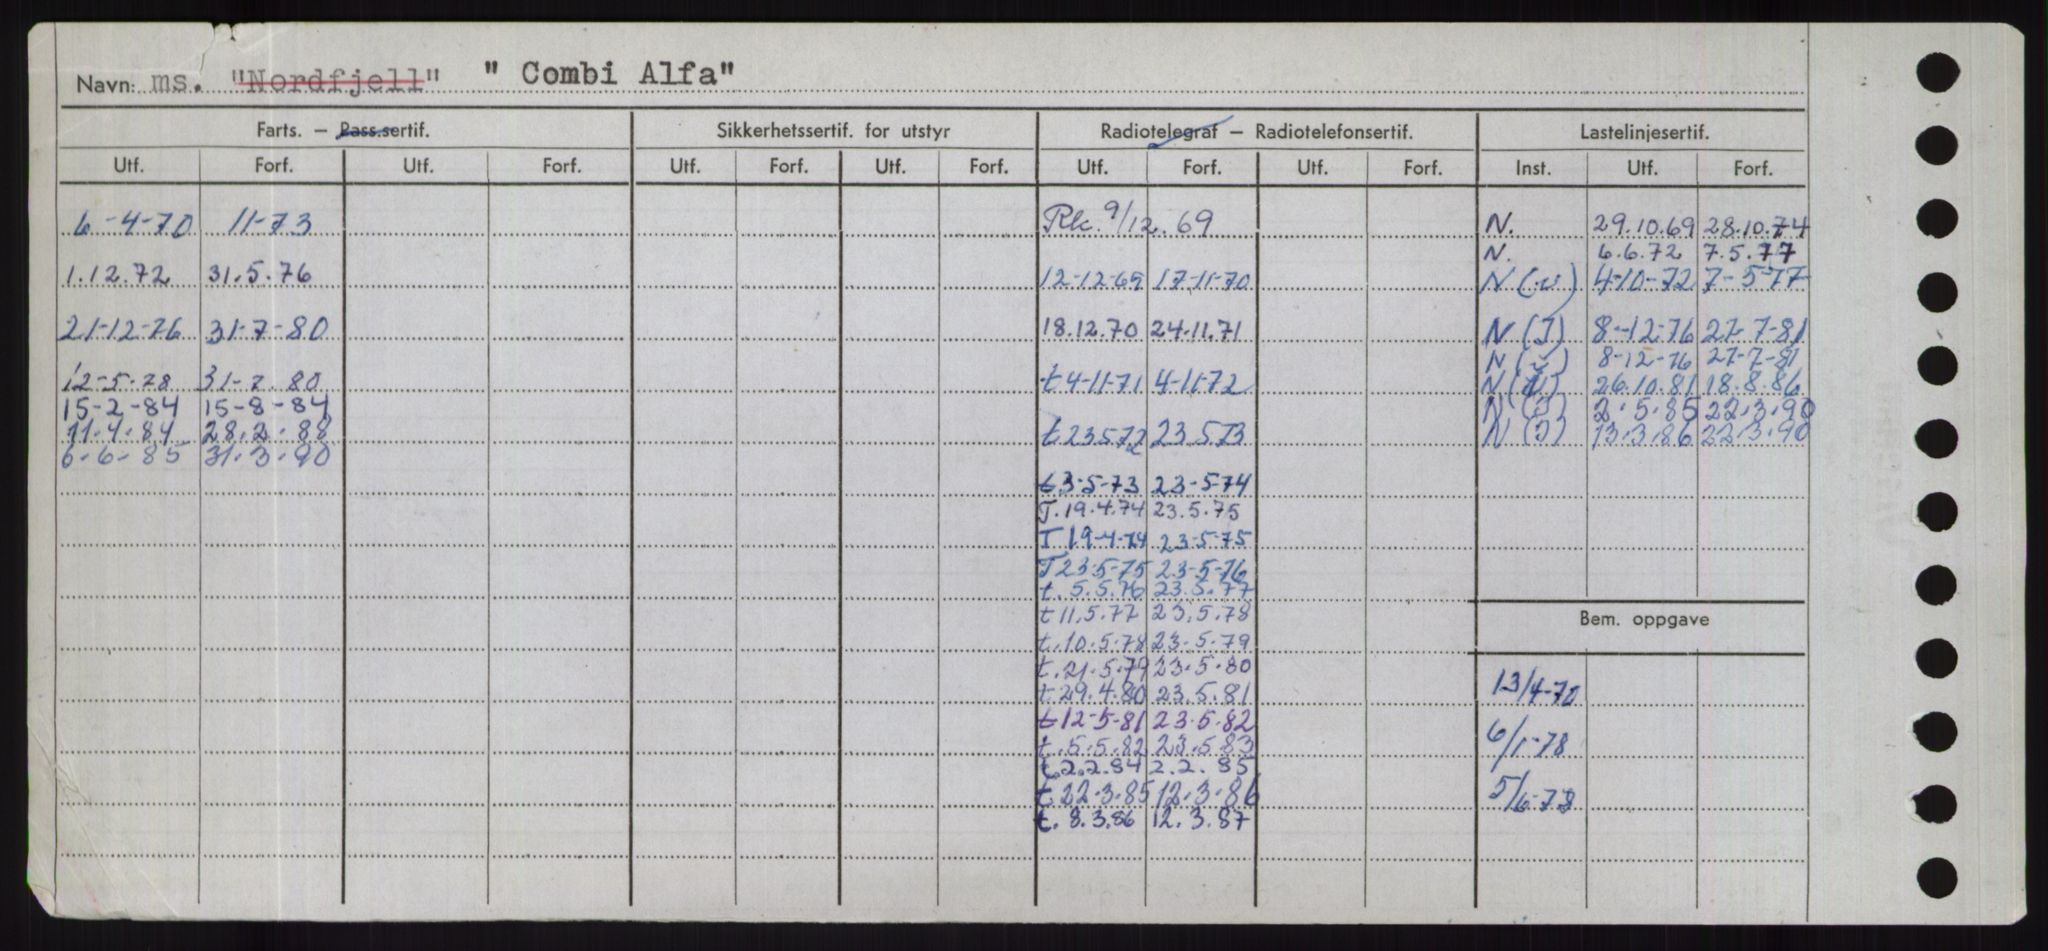 Navn: ms. "Nordfjell" " Combi Alfa"
Farts. — Pass.sertif. Sikkerhetssertif. for utstyr Radiotelegraf — Radiotelefonsertif. Lastelinjesertif.
Utf. Forf. Utf. Forf. Utf. Forf. Utf. Forf. Utf. Forf. Utf. Forf. Inst. Utf. Forf.
6-4-70 11-73 Rk. 9/12.69 N. 29.10.69 28.10.74
N. 6.6.72 7.5.77
1.12.72 31.5.76 12-12-69 17-11-70 N (v) 4-10-72 7-5-77
21-12-76 31-7-80 18.12.70 24.11.71 N (I) 8-12-76 27-7-81
N (v) 8-12-76 27-7-81
12-5-78 31-7.80 t 4-11-71 4-11-72 N 26.10.81 18.8.86
15-2-84 15-8-84 N (I) 2.5.85 22.3.90
11.4.84 28.2.88 t 23572 23.573 N (I) 13.3.86 22.3.90
6-6-85 31.3.90
t 3-5-73 23-5-74
T. 19.4.74 23.5.75
T 19-4-74 23-5-75
T 23-5-75 23-5-76
t. 5.5.76 23.5.77
t 11.5.77 23.5.78
Bem. oppgave
t. 10.5.78 23.5.79
t. 21.5.79 23.5.80
t 29.4.80 23.5.81 13/4-70
t 12-5-81 23.5.82
t. 5.5.82 23.5.83 6/1-78
t. 2.2.84 2.2.85
t 22.3.85 12.3.86 5/6-78
t. 8.3.86 12.3.87